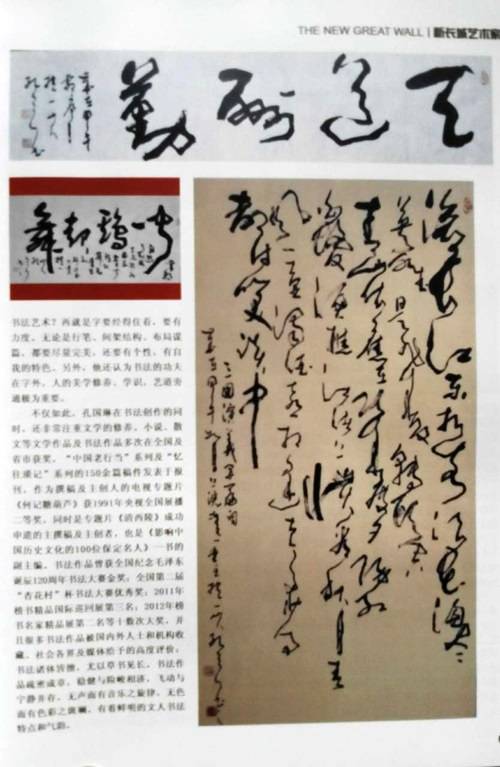 THE NEW GREAT WALL | 新长城艺术家
天道酬勤
滚滚长江东逝水浪花淘尽
英雄是非成败转头空
青山依旧在几度夕阳红
白发渔樵江渚上惯看秋月春
风一壶浊酒喜相逢古今多少事
都付笑谈中
书法艺术？再就是字要经得住看，要有
力度，无论是行笔、间架结构、布局谋
篇，都要尽量完美，还要有个性，有自
我的特色。另外，他还认为书法的功夫
在字外，人的美学修养、学识、艺道旁
通极为重要。
不仅如此，孔国琳在书法创作的同
时，还非常注重文学的修养，小说、散
文等文学作品及书法作品多次在全国及
省市获奖。“中国老行当”系列及“忆
往琐记”系列的150余篇稿件发表于报
刊，作为撰稿及主创人的电视专题片
《何记糖葫芦》获1991年央视全国展播
二等奖，同时是专题片《清西陵》成功
申遗的主撰稿及主创者，也是《影响中
国历史文化的100位保定名人》一书的
副主编。书法作品曾获全国纪念毛泽东
诞辰120周年书法大赛金奖；全国第二届
“杏花村”杯书法大赛优秀奖；2011年
榜书精品国际巡回展第三名；2012年榜
书名家精品展第二名等十数次大奖，并
且很多书法作品被国内外人士和机构收
藏。社会各界及媒体给予的高度评价：
书法诸体皆擅，尤以草书见长，书法作
品疏密成章，稳健与险峻相济，飞动与
宁静并存，无声而有音乐之旋律，无色
而有色彩之斑斓，有着鲜明的文人书法
特点和气韵。